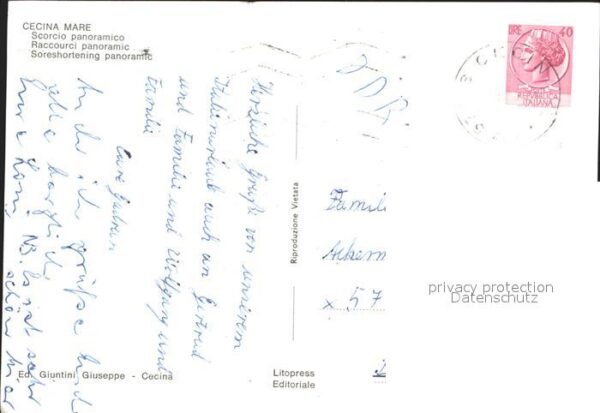 CECINA MARE
Scorcio panoramico
Raccourci panoramic
Soreshortening panoramic
LIRE 40
REPUBBLICA
ITALIANA
DDR
Herzliche Grüße von unserem
Italienurlaub auch an Gertrud
und Familie und Wolfgang und
Familie
Eure Gudrun
Auch ich grüße Euch
alle herzlich
Eure
NB. Es ist sehr
schön hier
Riproduzione Vietata
Famili
Ackerm
x 57
privacy protection
Datenschutz
Ed. Giuntini Giuseppe - Cecina
Litopress
Editoriale